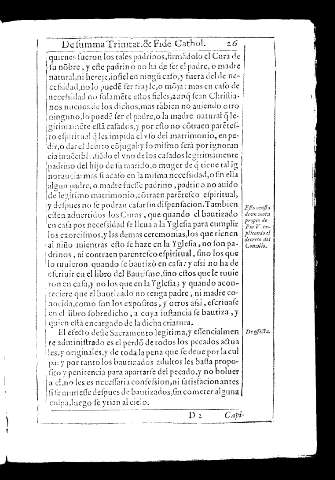 De summa Trinitat. & Fide Cathol. 26
quienes fueron los tales padrinos, firmãdolo el Cura de
su nõbre, y este padrino no ha de ser el padre, o madre
natural, ni hereje, infiel en ningũ caso, y fuera del de ne-
cesidad, no lo puedẽ ser frayle, o mõja: mas en caso de
necesidad no solamẽte estos fieles, aunq̃ sean Christia-
nos nueuos de los dichos, mas tãbien no auiendo otro
ninguno, lo puedẽ ser el padre, o la madre natural q̃ le-
gitimamẽte estã casados, y por esto no cõtraen parẽtes-
co espiritual q̃ les impida el vso del matrimonio, en pe-
dir, o dar el debito cõjugal y lo mismo será por ignoran
cia
padrino del hijo de la marido, o muger de q̃ tiene tal ig
norancia: mas si acaso en la misma necesidad, o sin ella
algun padre, o madre fuesse padrino, padrino no auido
de legitimo matrimonio, cõtraen parẽtesco espiritual,
y despues no se podran casar sin dispensacion. Tambien
esten aduertidos los Curas, que quando el bautizado
en casa por necesidad se lleua a la Yglesia para cumplir
los exorcismos, y las demas ceremonias, los que tienen
al niño mientras esto se haze en la Yglesia, no son pa-
drinos, ni contraen parentesco espiritual, sino los que
lo tuuieron quando se bautizò en casa: y assi no ha de
escriuir en el libro del Bautismo, sino estos que le tuuie
ron en casa, y no los que en la Yglesia; y quando acon-
teciere que el bautizado no tenga padre, ni madre co-
nocida, como son los expositos, y otros assi, escriuase
en el libro sobredicho, a cuya instancia se bautiza, y
quien està encargado de la dicha criatura.
El efecto deste Sacramento legitima, y essencialmen
te administrado es el perdõ de todos los pecados actua
les, y originales, y de toda la pena que se deue por la cul
pa: y por tanto los bautizados adultos les basta propo-
sito y penitencia para apartarse del pecado, y no boluer
a el, no les es necessaria confession, ni satisfacion antes
si se muriesse despues de bautizados, sin cometer alguna
culpa, luego se yrian al cielo.
Esto consta
Pio V.
decreto del
Concilio.
De effectu.
D 2 Capi-